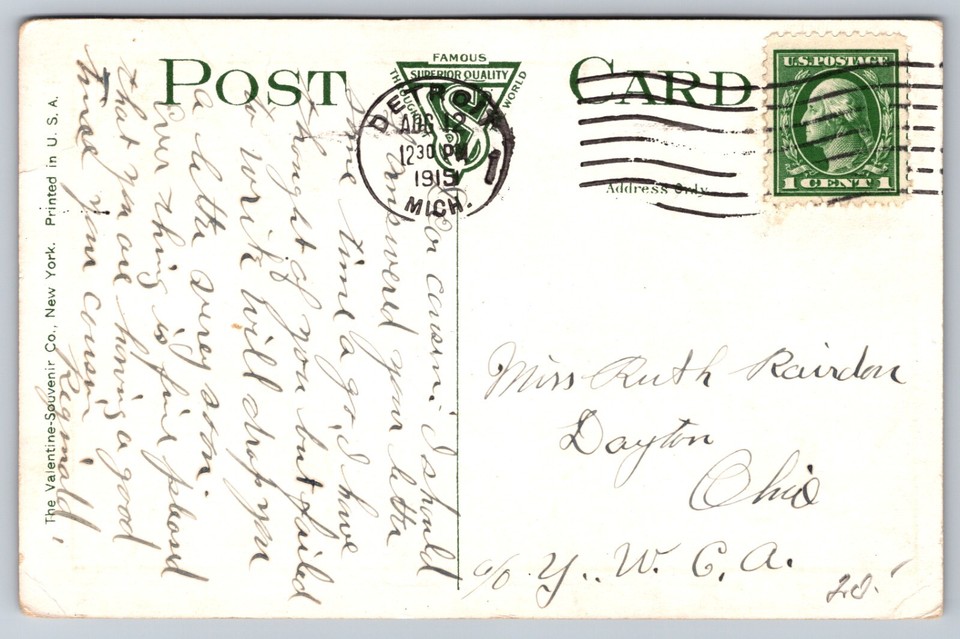 POST CARD
FAMOUS
SUPERIOR QUALITY
THROUGHOUT
WORLD
DETROIT
AUG 12
12 30 PM
1915
MICH.
U.S. POSTAGE
1 CENT 1
Address Only.
Miss Ruth Rairdon
Dayton
Ohio
c/o Y. W. C. A.
28.
cousin: I should
answered your letter
some time ago I have
thought of you but failed
to write will drop you
a letter very soon.
ever thing is fine pleased
that you are having a good
time your cousin
Reginald,
The Valentine-Souvenir Co., New York. Printed in U. S. A.